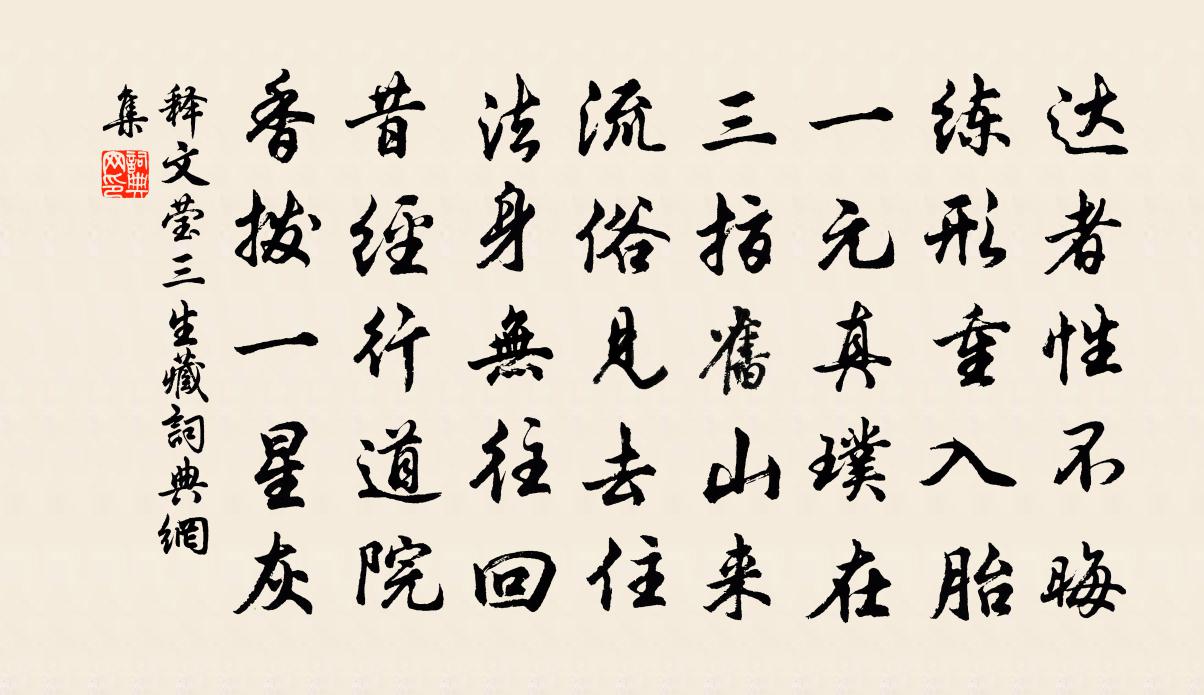 达者性不晦
练形重入胎
一元真璞在
三指舊山来
流俗見去住
法身無往回
昔經行道院
香拨一星灰
释文莹三生藏詞典網
集
詞典
网印